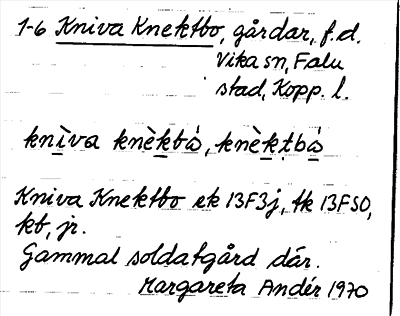 1-6 Kniva Knektbo, gårdar, f.d.
Vika sn, Falu
stad, Kopp. l.
knìva knèkbå, knèktbå
Kniva Knektbo ek 13F3j, tk 13FSO,
kb, jr.
Gammal soldatgård där.
Margareta Andér 1970